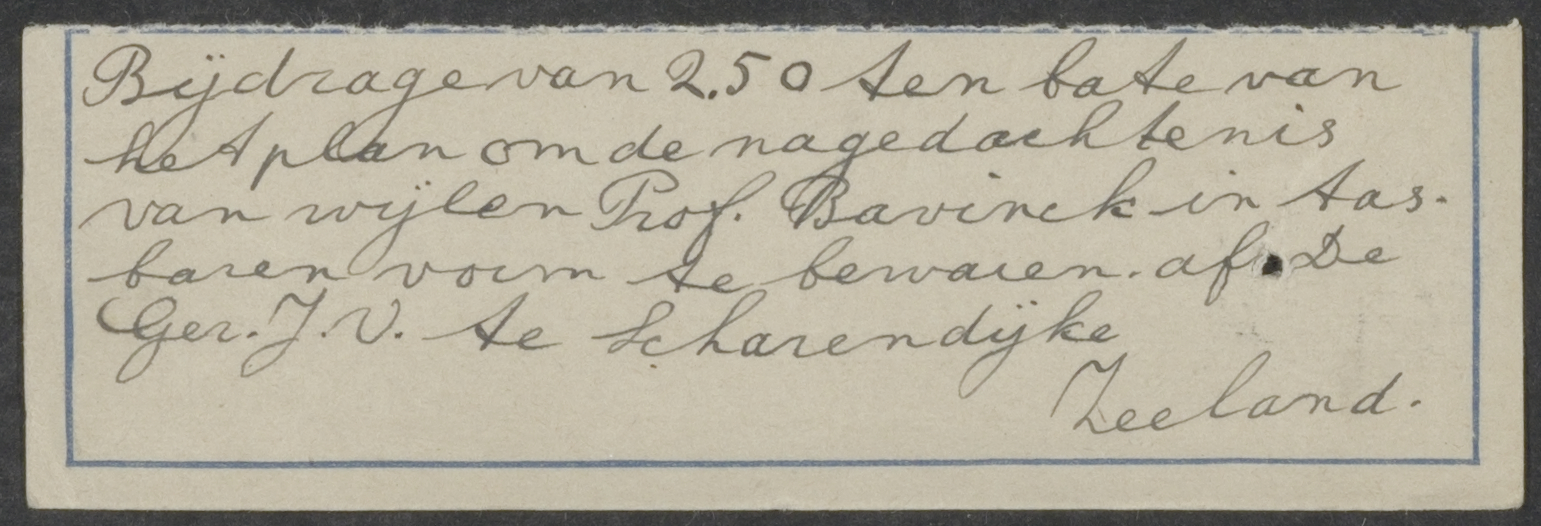 Bijdrage van 2.50 ten bate van
het plan om de nagedachtenis
van wijlen Prof. Bavinck in tas-
baren vorm te bewaren. af. De
Ger. J.V. te Scharendijke
Zeeland.